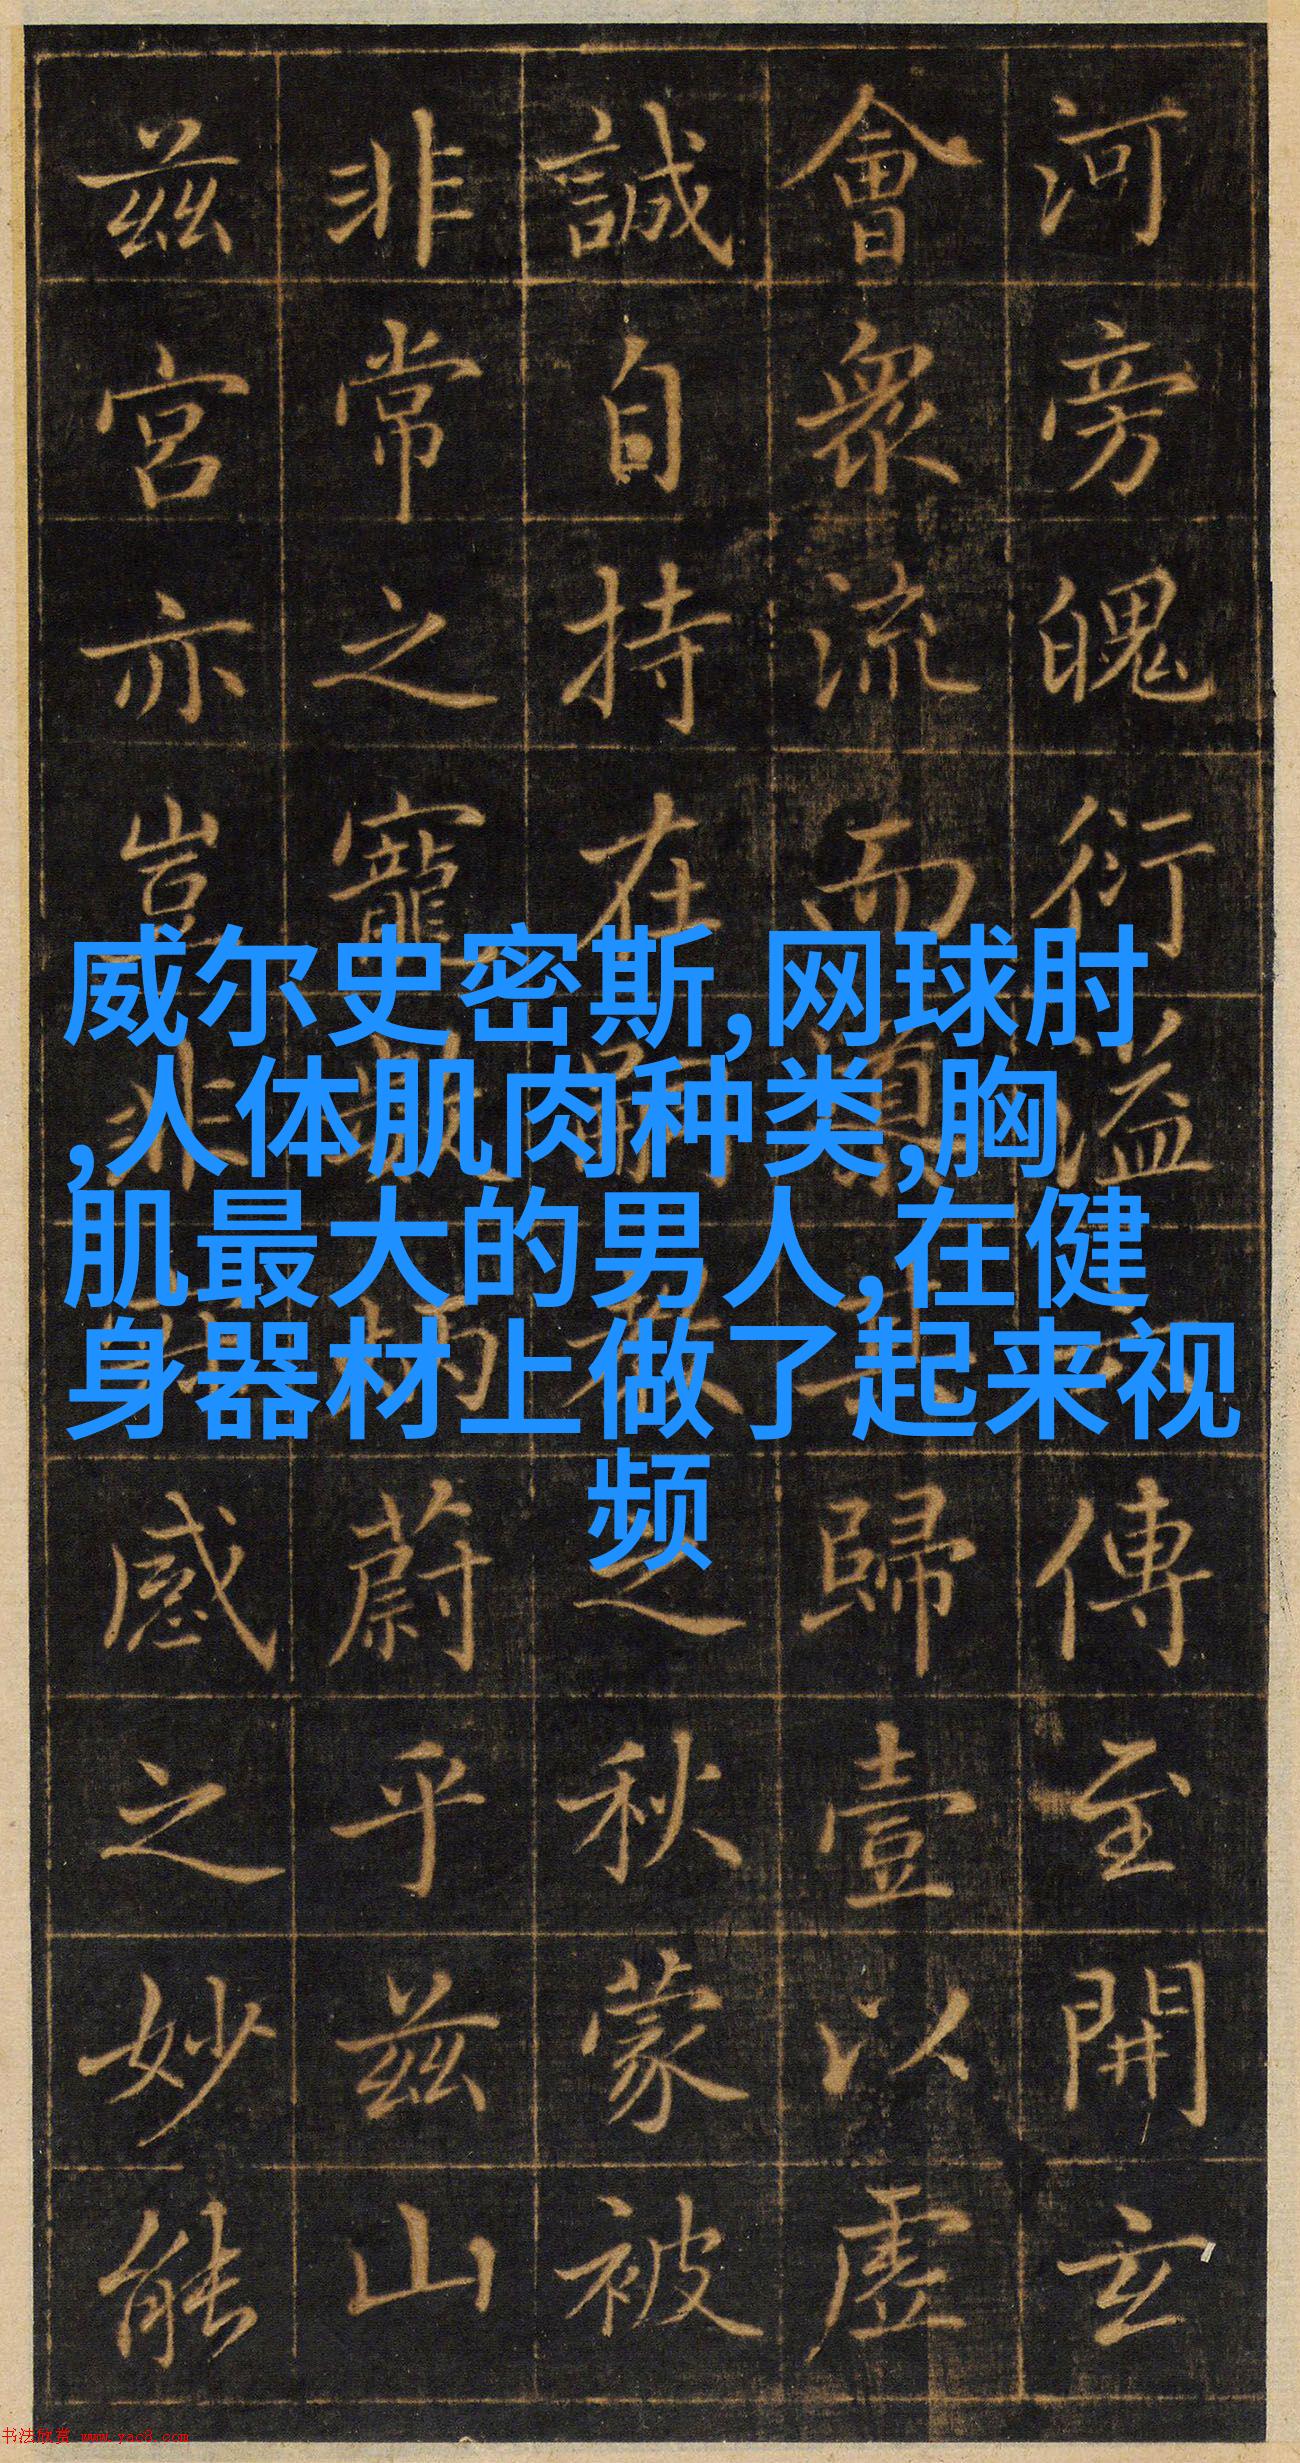 河旁魄衍溢
傳至開玄
會衆流而
歸壹以虚
誠自持在
之秋蒙被
非常之寵
蔚乎兹山
兹宮亦豈非
感之妙能
威尔史密斯,网球肘
,人体肌肉种类,胸
肌最大的男人,在健
身器材上做了起来视
频
书法欣赏 www.yac8.com